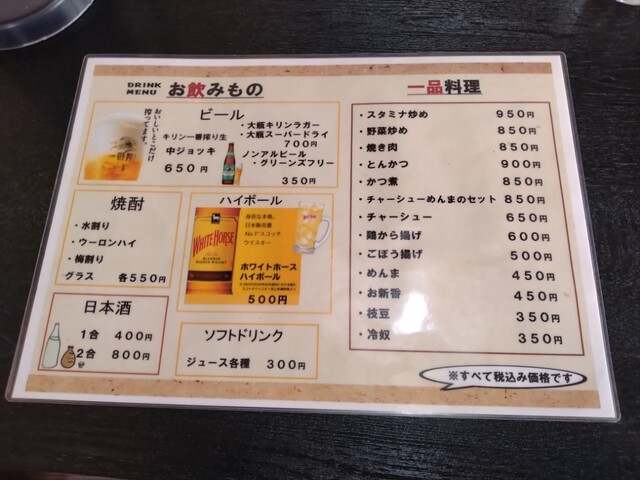 DRINK MENU お飲みもの
ビール
おいしいとこだけ
搾ってます。
キリン一番搾り生
中ジョッキ
650円
・大瓶キリンラガー
・大瓶スーパードライ
700円
ノンアルビール
・グリーンズフリー
350円
焼酎
・水割り
・ウーロンハイ
・梅割り
グラス 各550円
ハイボール
WHITE HORSE
日本販売量
No.1スコッチ
ウイスキー
ホワイトホース
ハイボール
500円
日本酒
1合 400円
2合 800円
ソフトドリンク
ジュース各種 300円
一品料理
・スタミナ炒め 950円
・野菜炒め 850円
・焼き肉 850円
・とんかつ 900円
・かつ煮 850円
・チャーシューめんまのセット 850円
・チャーシュー 650円
・鶏から揚げ 600円
・ごぼう揚げ 500円
・めんま 450円
・お新香 450円
・枝豆 350円
・冷奴 350円
※すべて税込み価格です